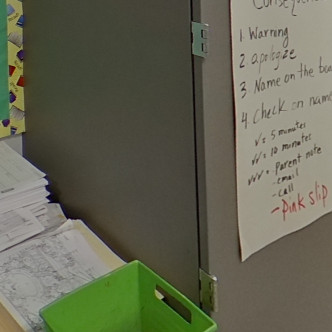 Consequen
1. Warning
2. apologize
3. Name on the boa
4. Check on name
✓ = 5 minutes
✓✓ = 10 minutes
✓✓✓ = Parent note
- email
- call
- Pink slip